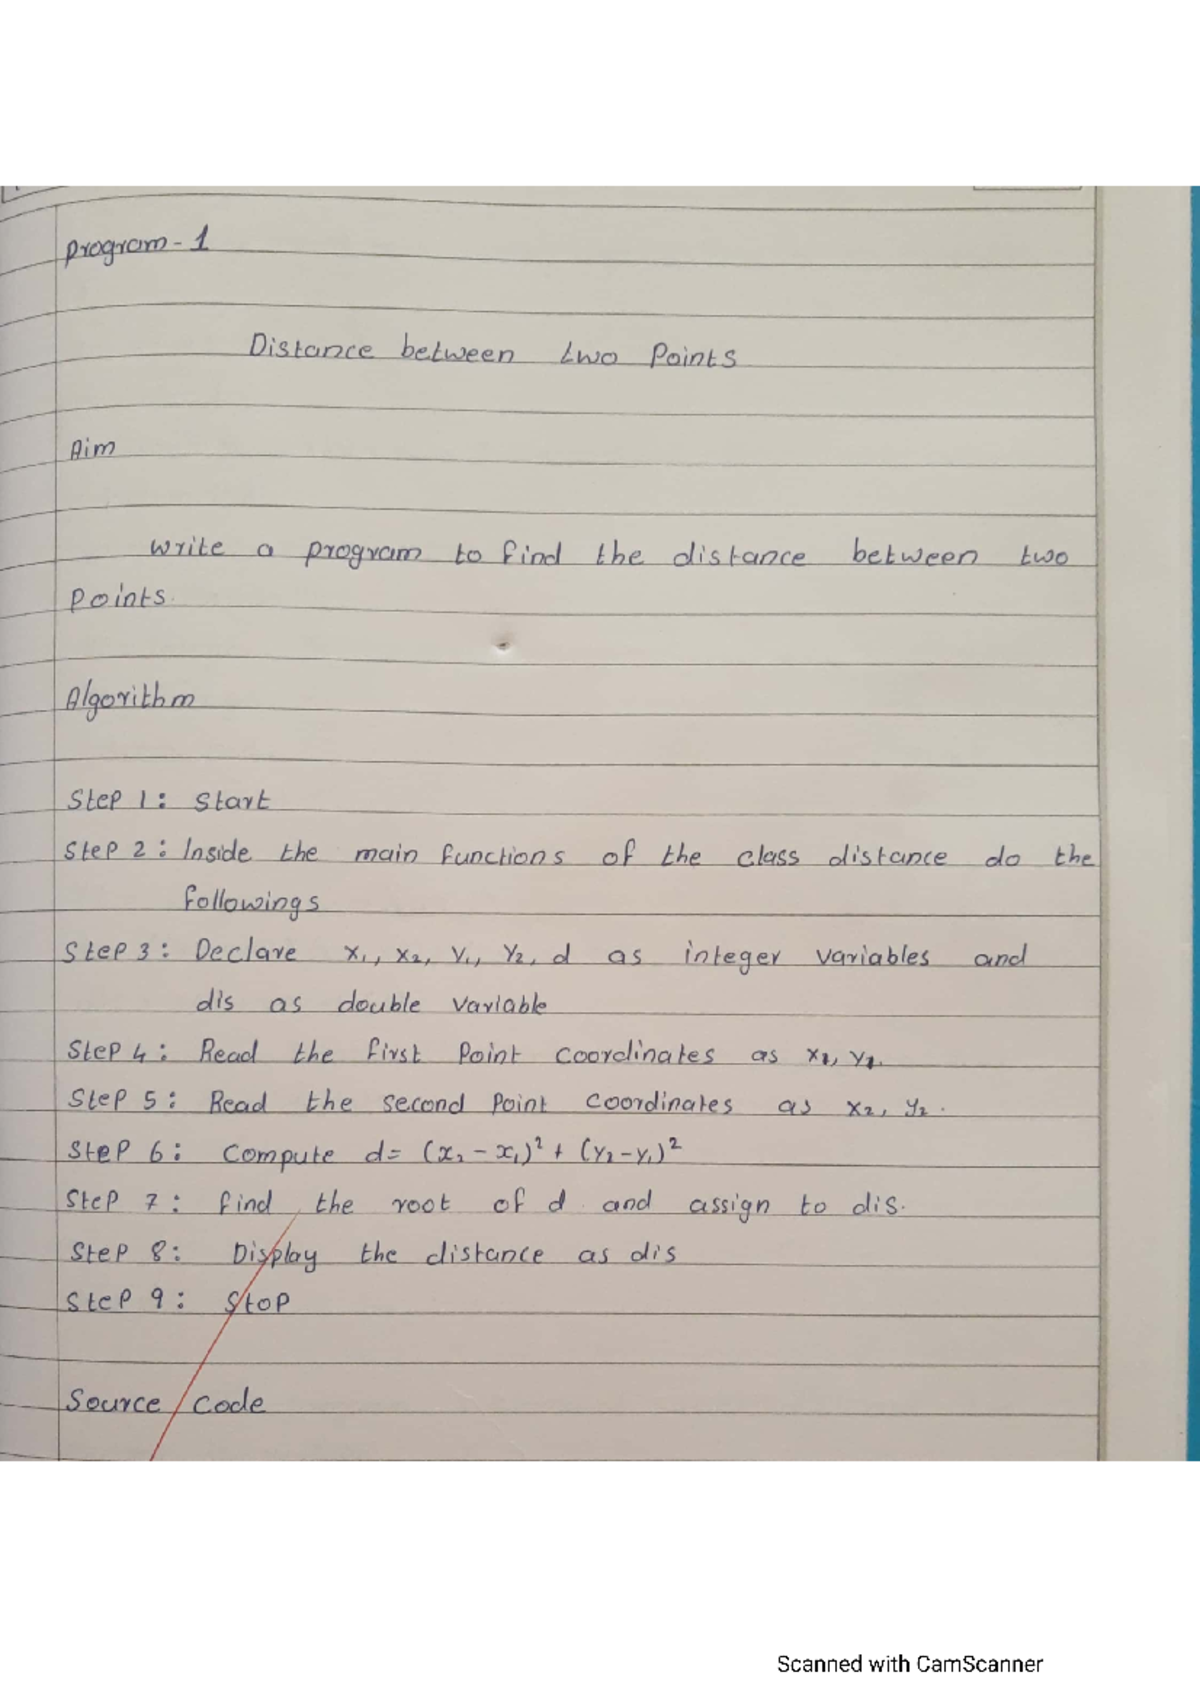 Program - 1
Distance between two Points
Aim
Write a program to find the distance between two
Points.
Algorithm
Step 1: Start
Step 2: Inside the main functions of the class distance do the
followings
Step 3: Declare x₁, x₂, y₁, y₂, d as integer variables and
dis as double variable
Step 4: Read the first Point coordinates as x₁, y₁.
Step 5: Read the second Point coordinates as x₂, y₂.
Step 6: Compute d= (x₂ - x₁)² + (y₂-y₁)²
Step 7: find the root of d and assign to dis.
Step 8: Display the distance as dis
Step 9: Stop
Source code
Scanned with CamScanner